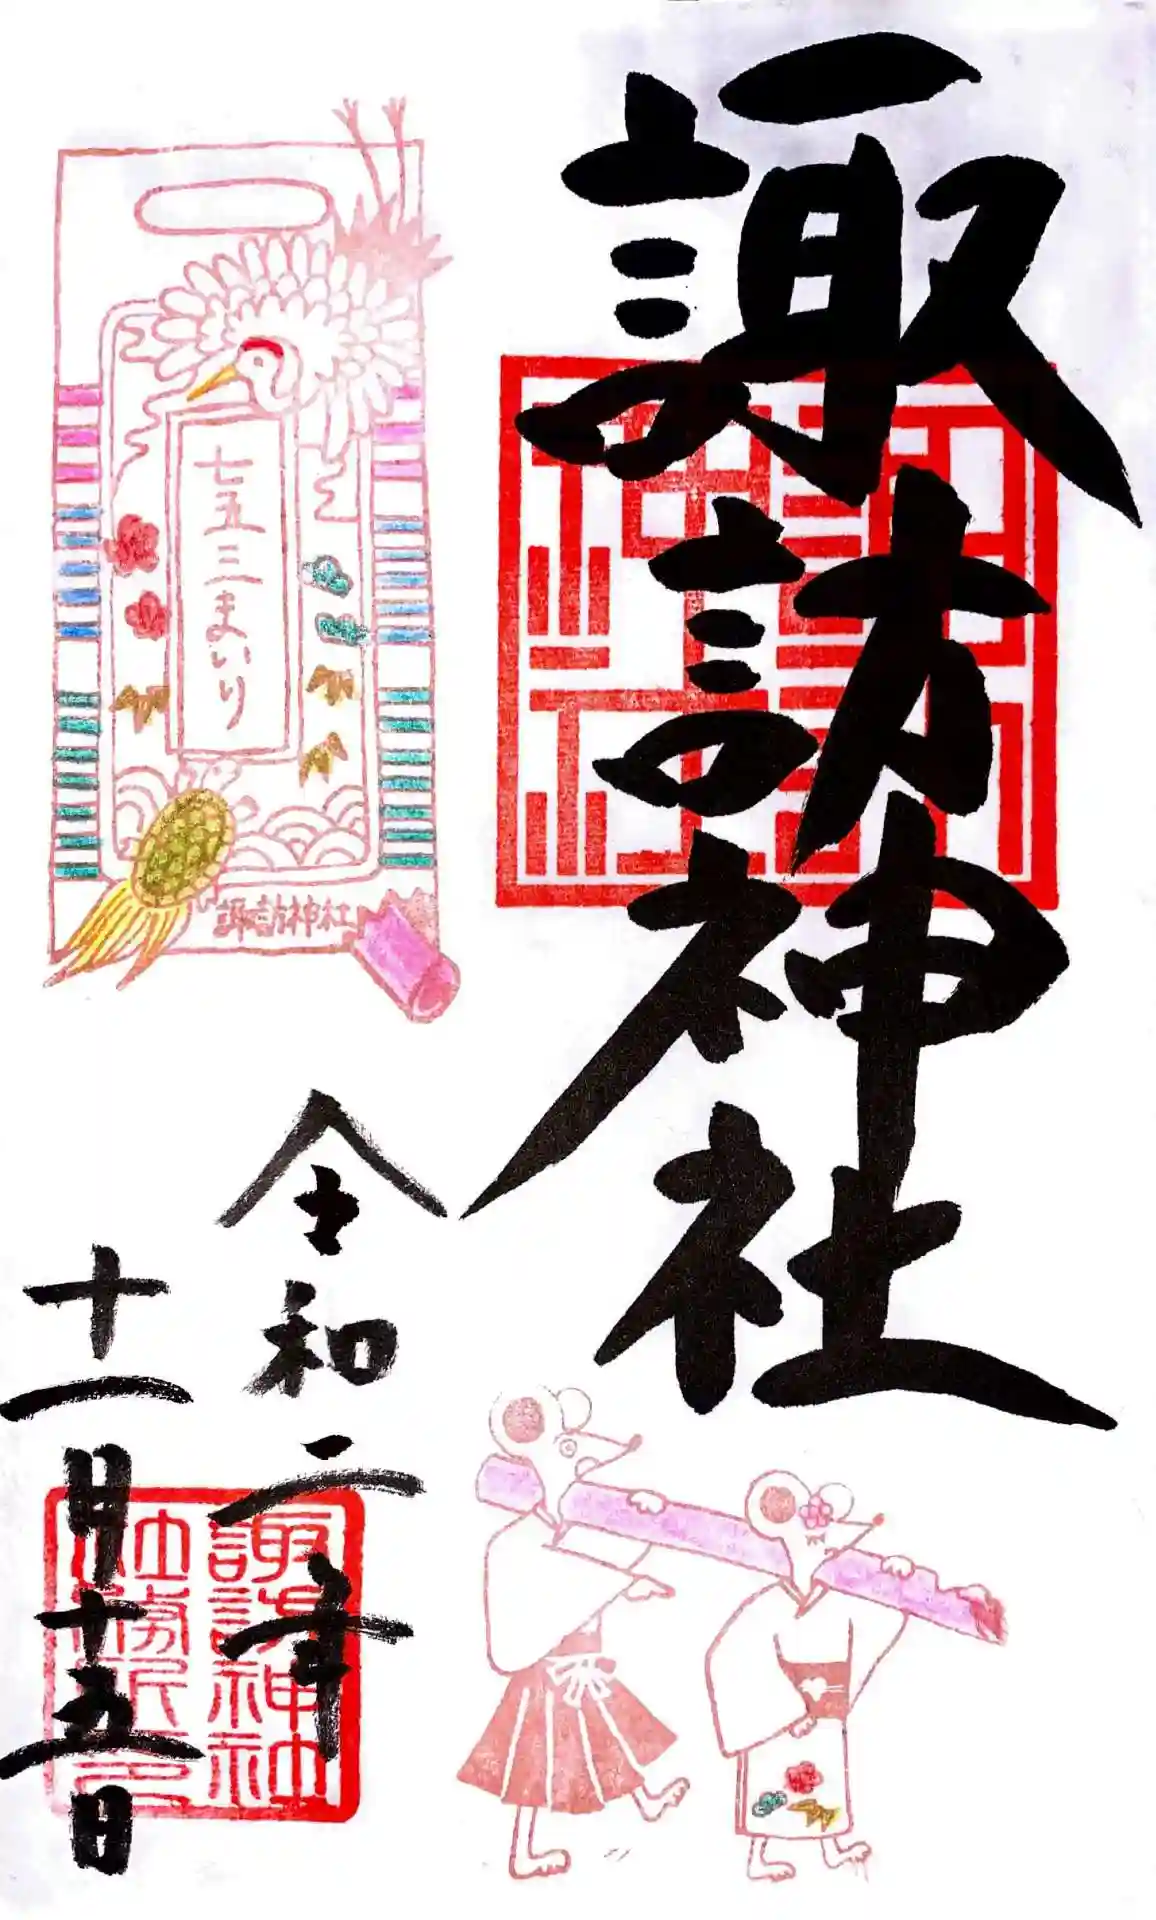 諏訪神社
七五三まいり
諏訪神社
令和二年
十一月十五日
諏訪神社
社務所之印